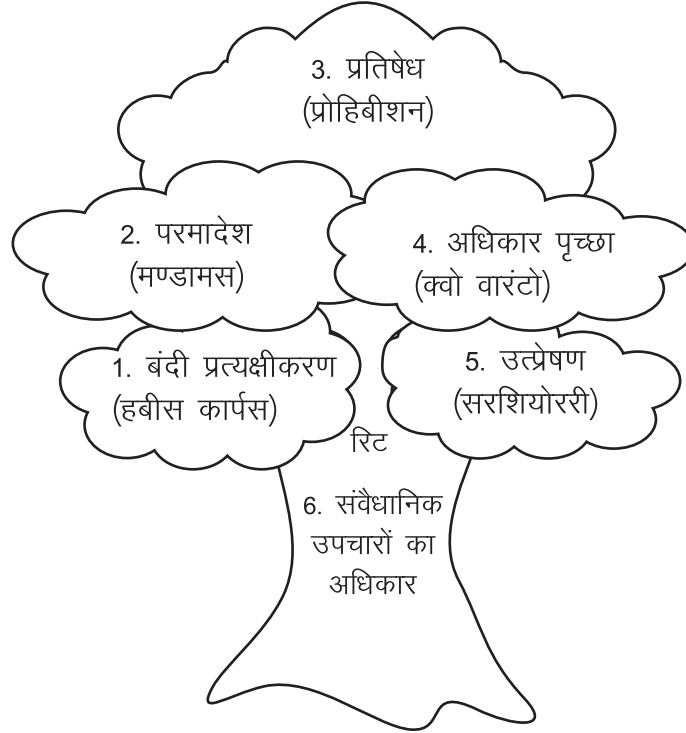 3. प्रतिषेध
(प्रोहिबीशन)
2. परमादेश
(मण्डामस)
4. अधिकार पृच्छा
(क्वो वारंटो)
1. बंदी प्रत्यक्षीकरण
(हबीस कार्पस)
5. उत्प्रेषण
(सरशियोररी)
रिट
6. संवैधानिक
उपचारों का
अधिकार